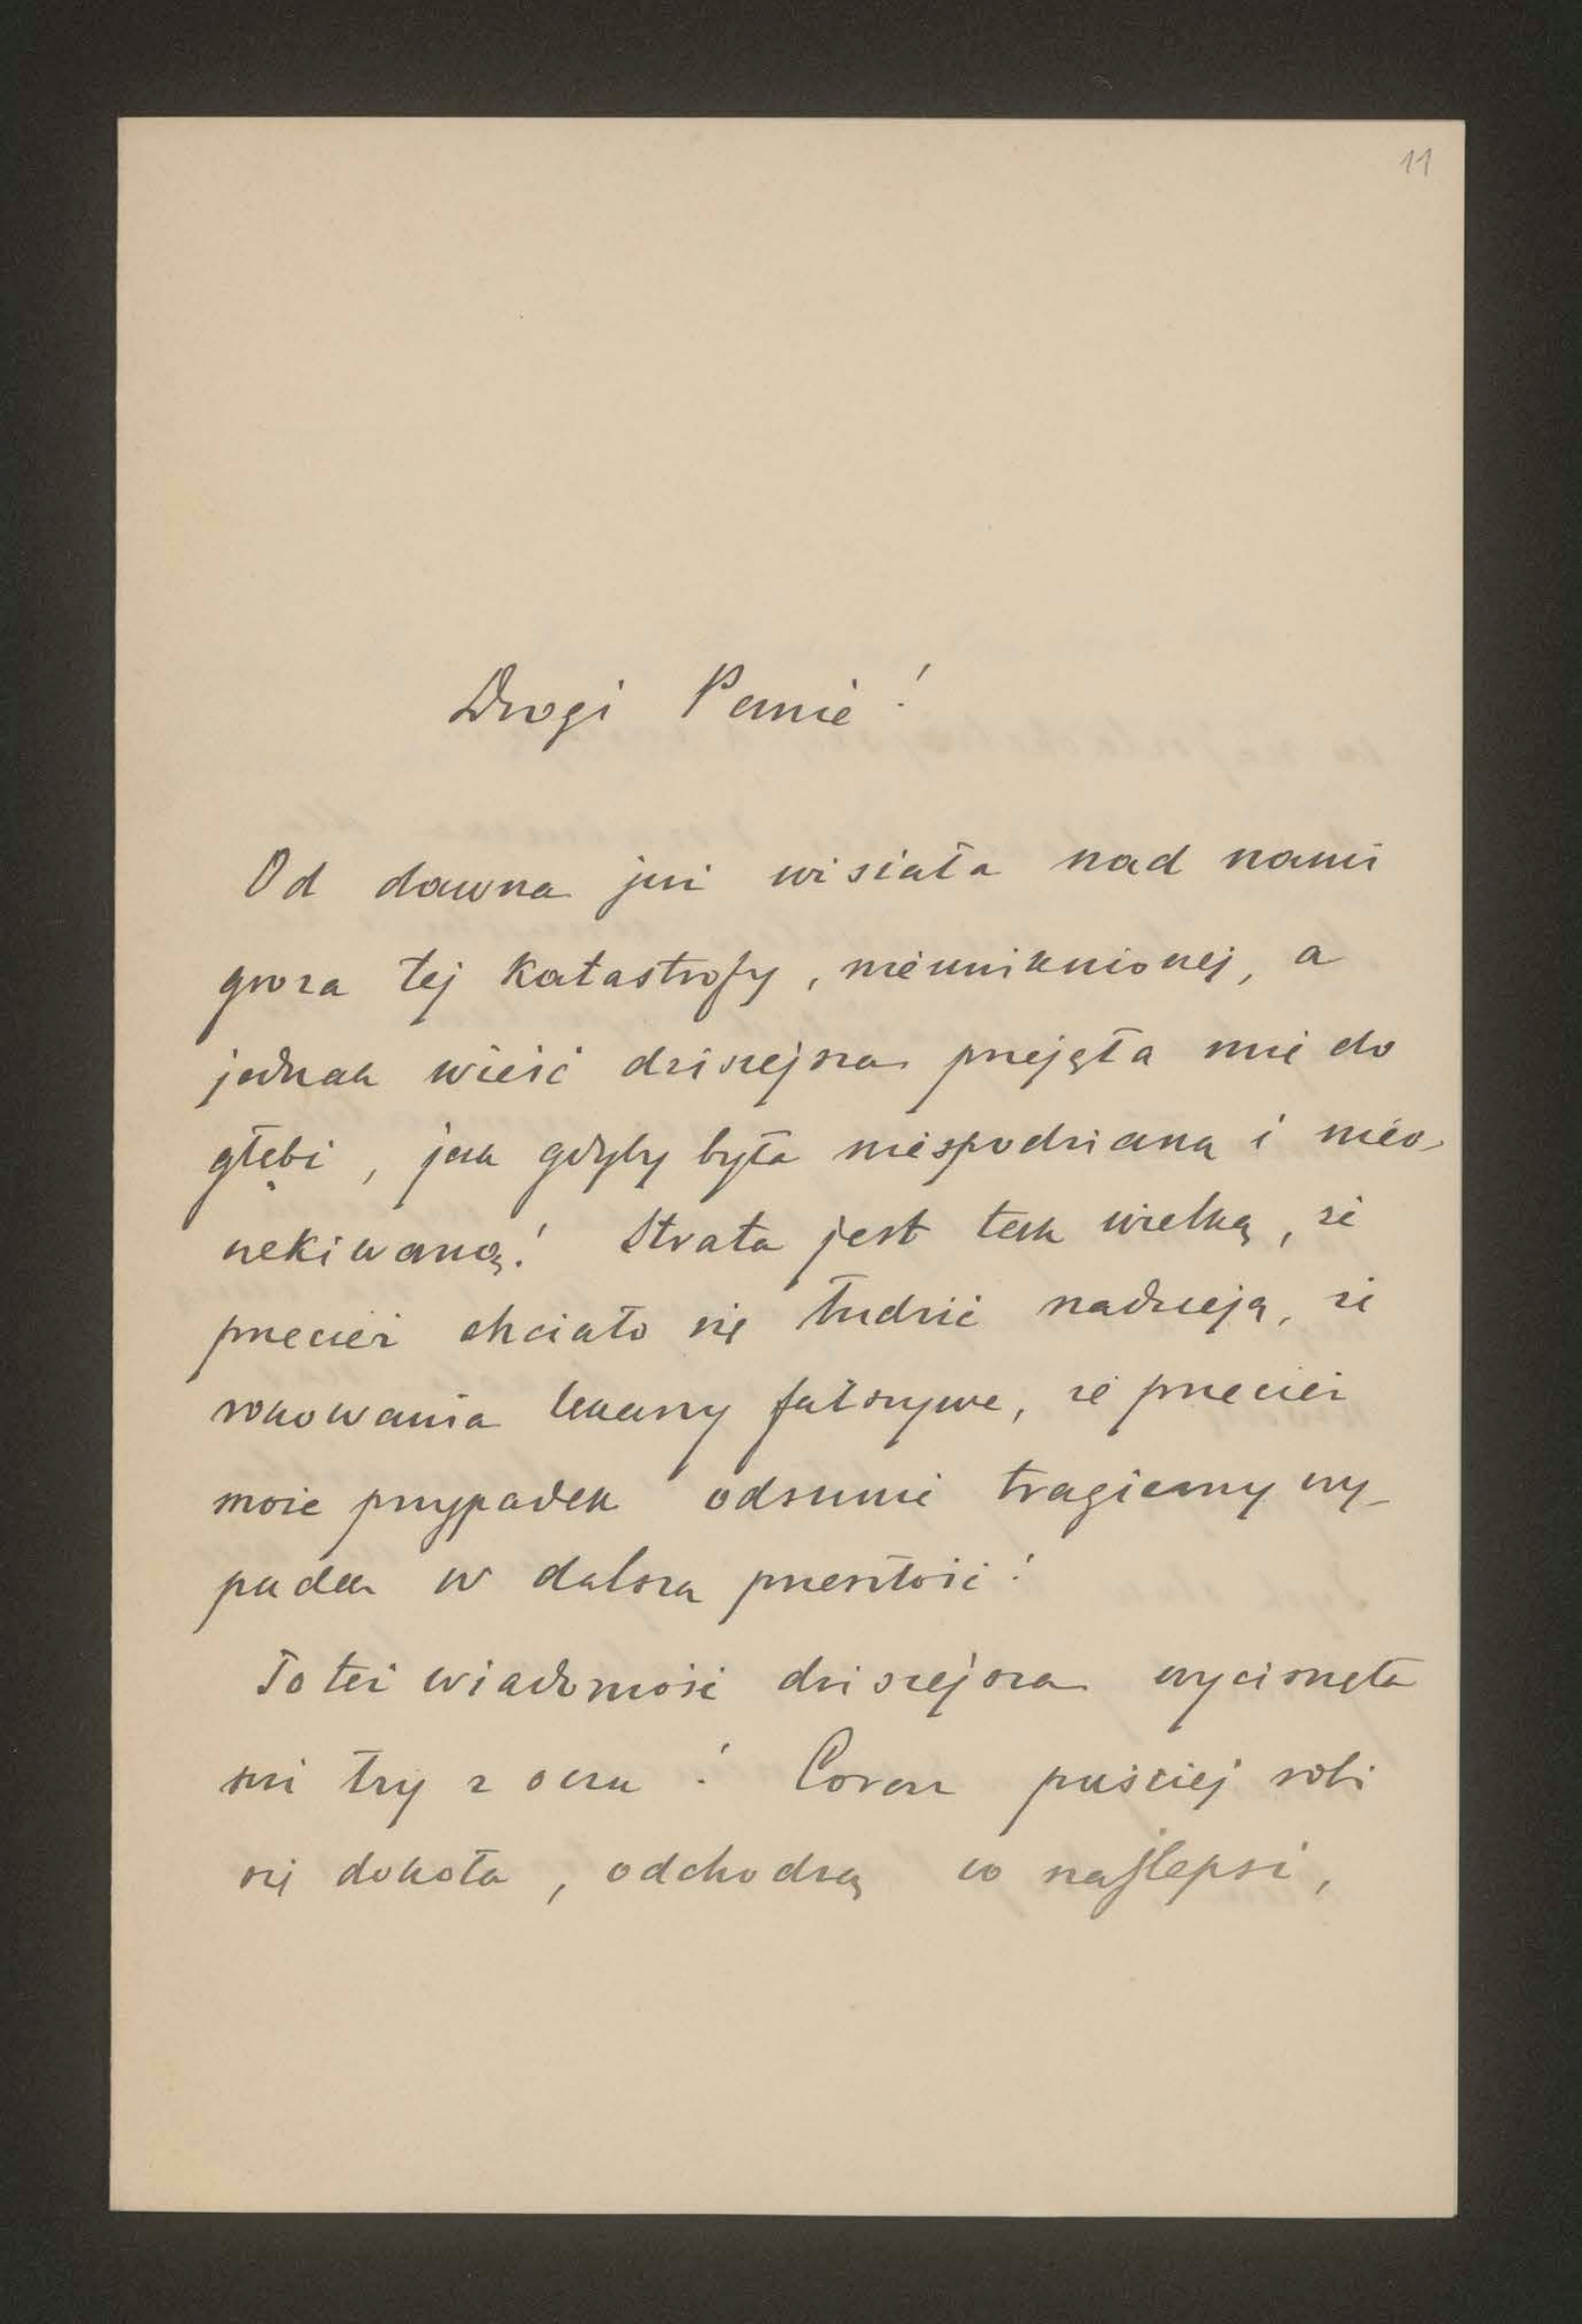 11
Drogi Panie!
Od dawna już wisiała nad nami
groza tej katastrofy, nieuniknionej, a
jednak wieść dzisiejsza przejęła mię do
głębi, jak gdyby była niespodzianą i nieo-
czekiwaną! Strata jest tak wielką, że
przecież chciało się łudzić nadzieją, że
rokowania lekarzy fałszywe, że przecież
może przypadek odsunie tragiczny wy-
padek w dalszą przeszłość!
To też wiadomość dzisiejsza wycisnęła
mi łzy z oczu! Coraz puściej robi
się dokoła, odchodzą co najlepsi,